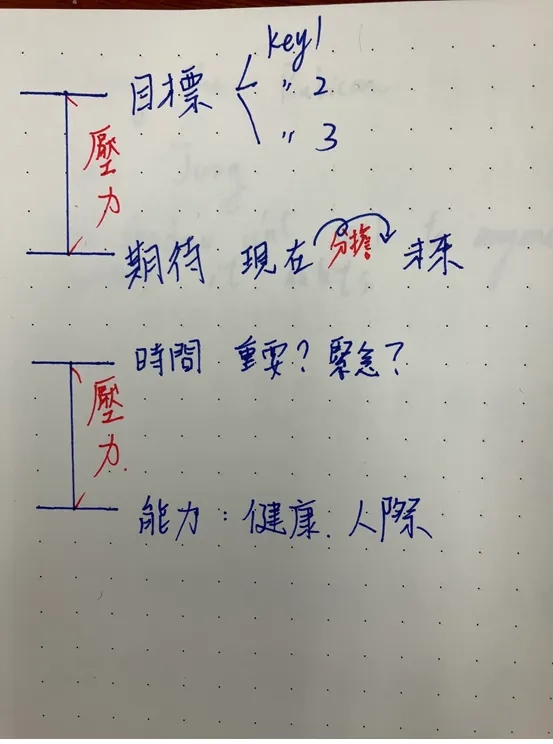 key1
目標 〃 2
〃 3
壓力
期待 現在 分擔 未來
時間 重要？緊急？
壓力
能力：健康、人際